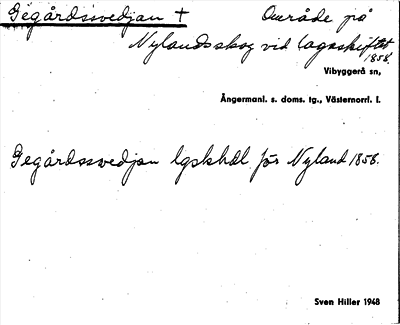 Gegårdssvedjan † Område på
Nylandsskog vid lagaskiftet
1858.
Vibyggerå sn,
Ångermanl. s. doms. tg., Västernorrl. l.
Gegårdssvedjan lgskhdl. för Nyland 1858.
Sven Hiller 1948